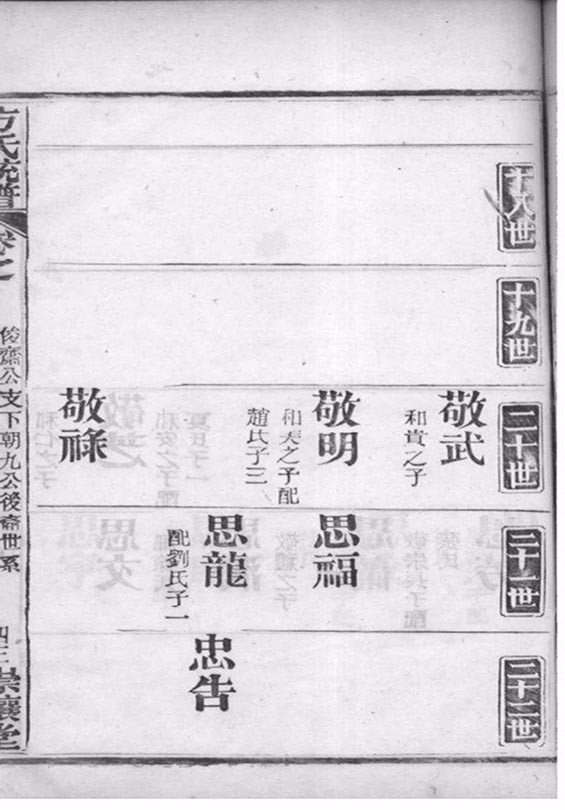 十八世
十九世
二十世
二十一世
二十二世
敬武
和貴之子
敬明
和泰之子配
趙氏子三
思福
思龍
配劉氏子一
忠告
敬祿
方氏統譜
卷之
俊齋公支下朝九公後裔世系
崇讓堂